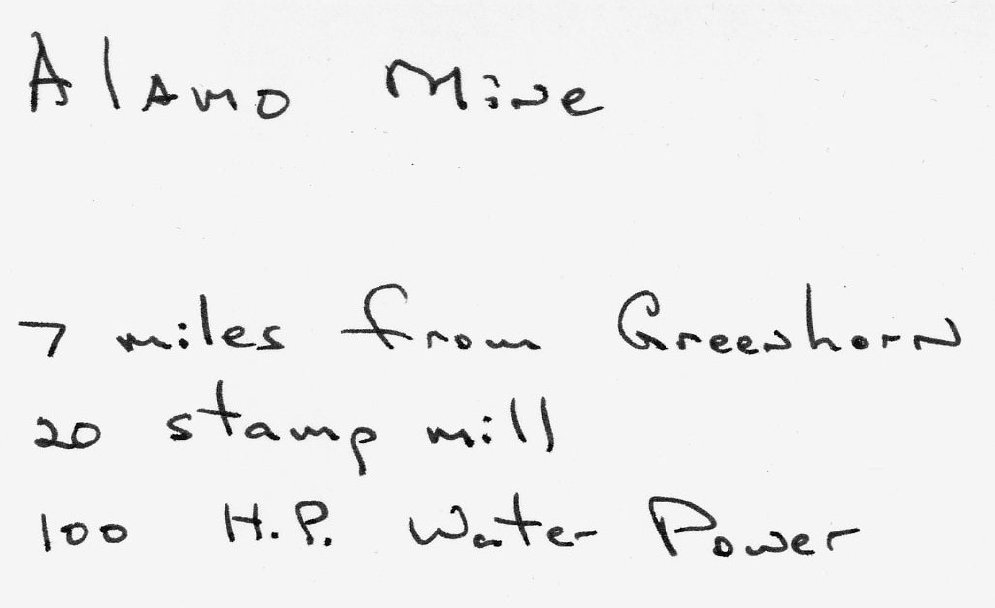 Alamo Mine
7 miles from Greenhorn
20 stamp mill
100 H.P. Water Power